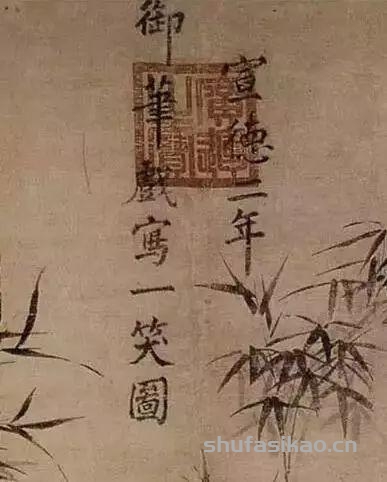 宣德二年
御筆戲寫一笑圖
shufasikao.cn